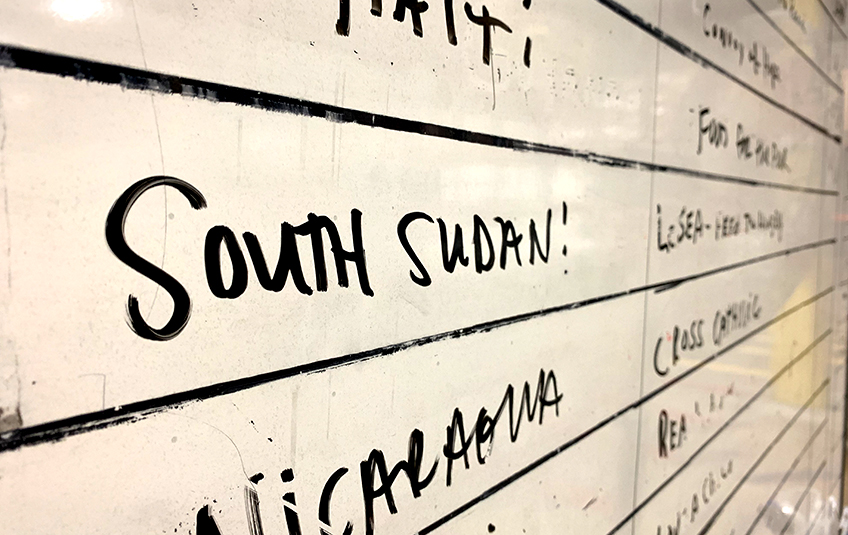 HAITI
Convoy of Hope
Food For The Poor
SOUTH SUDAN!
LeSEA - FEED THE HUNGRY
NICARAGUA
CROSS CATHOLIC